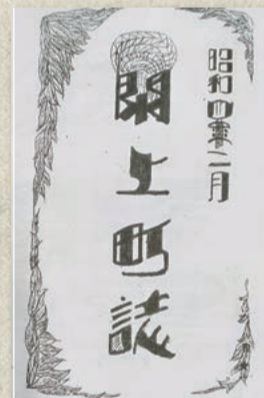 昭和四二月
閖上町誌